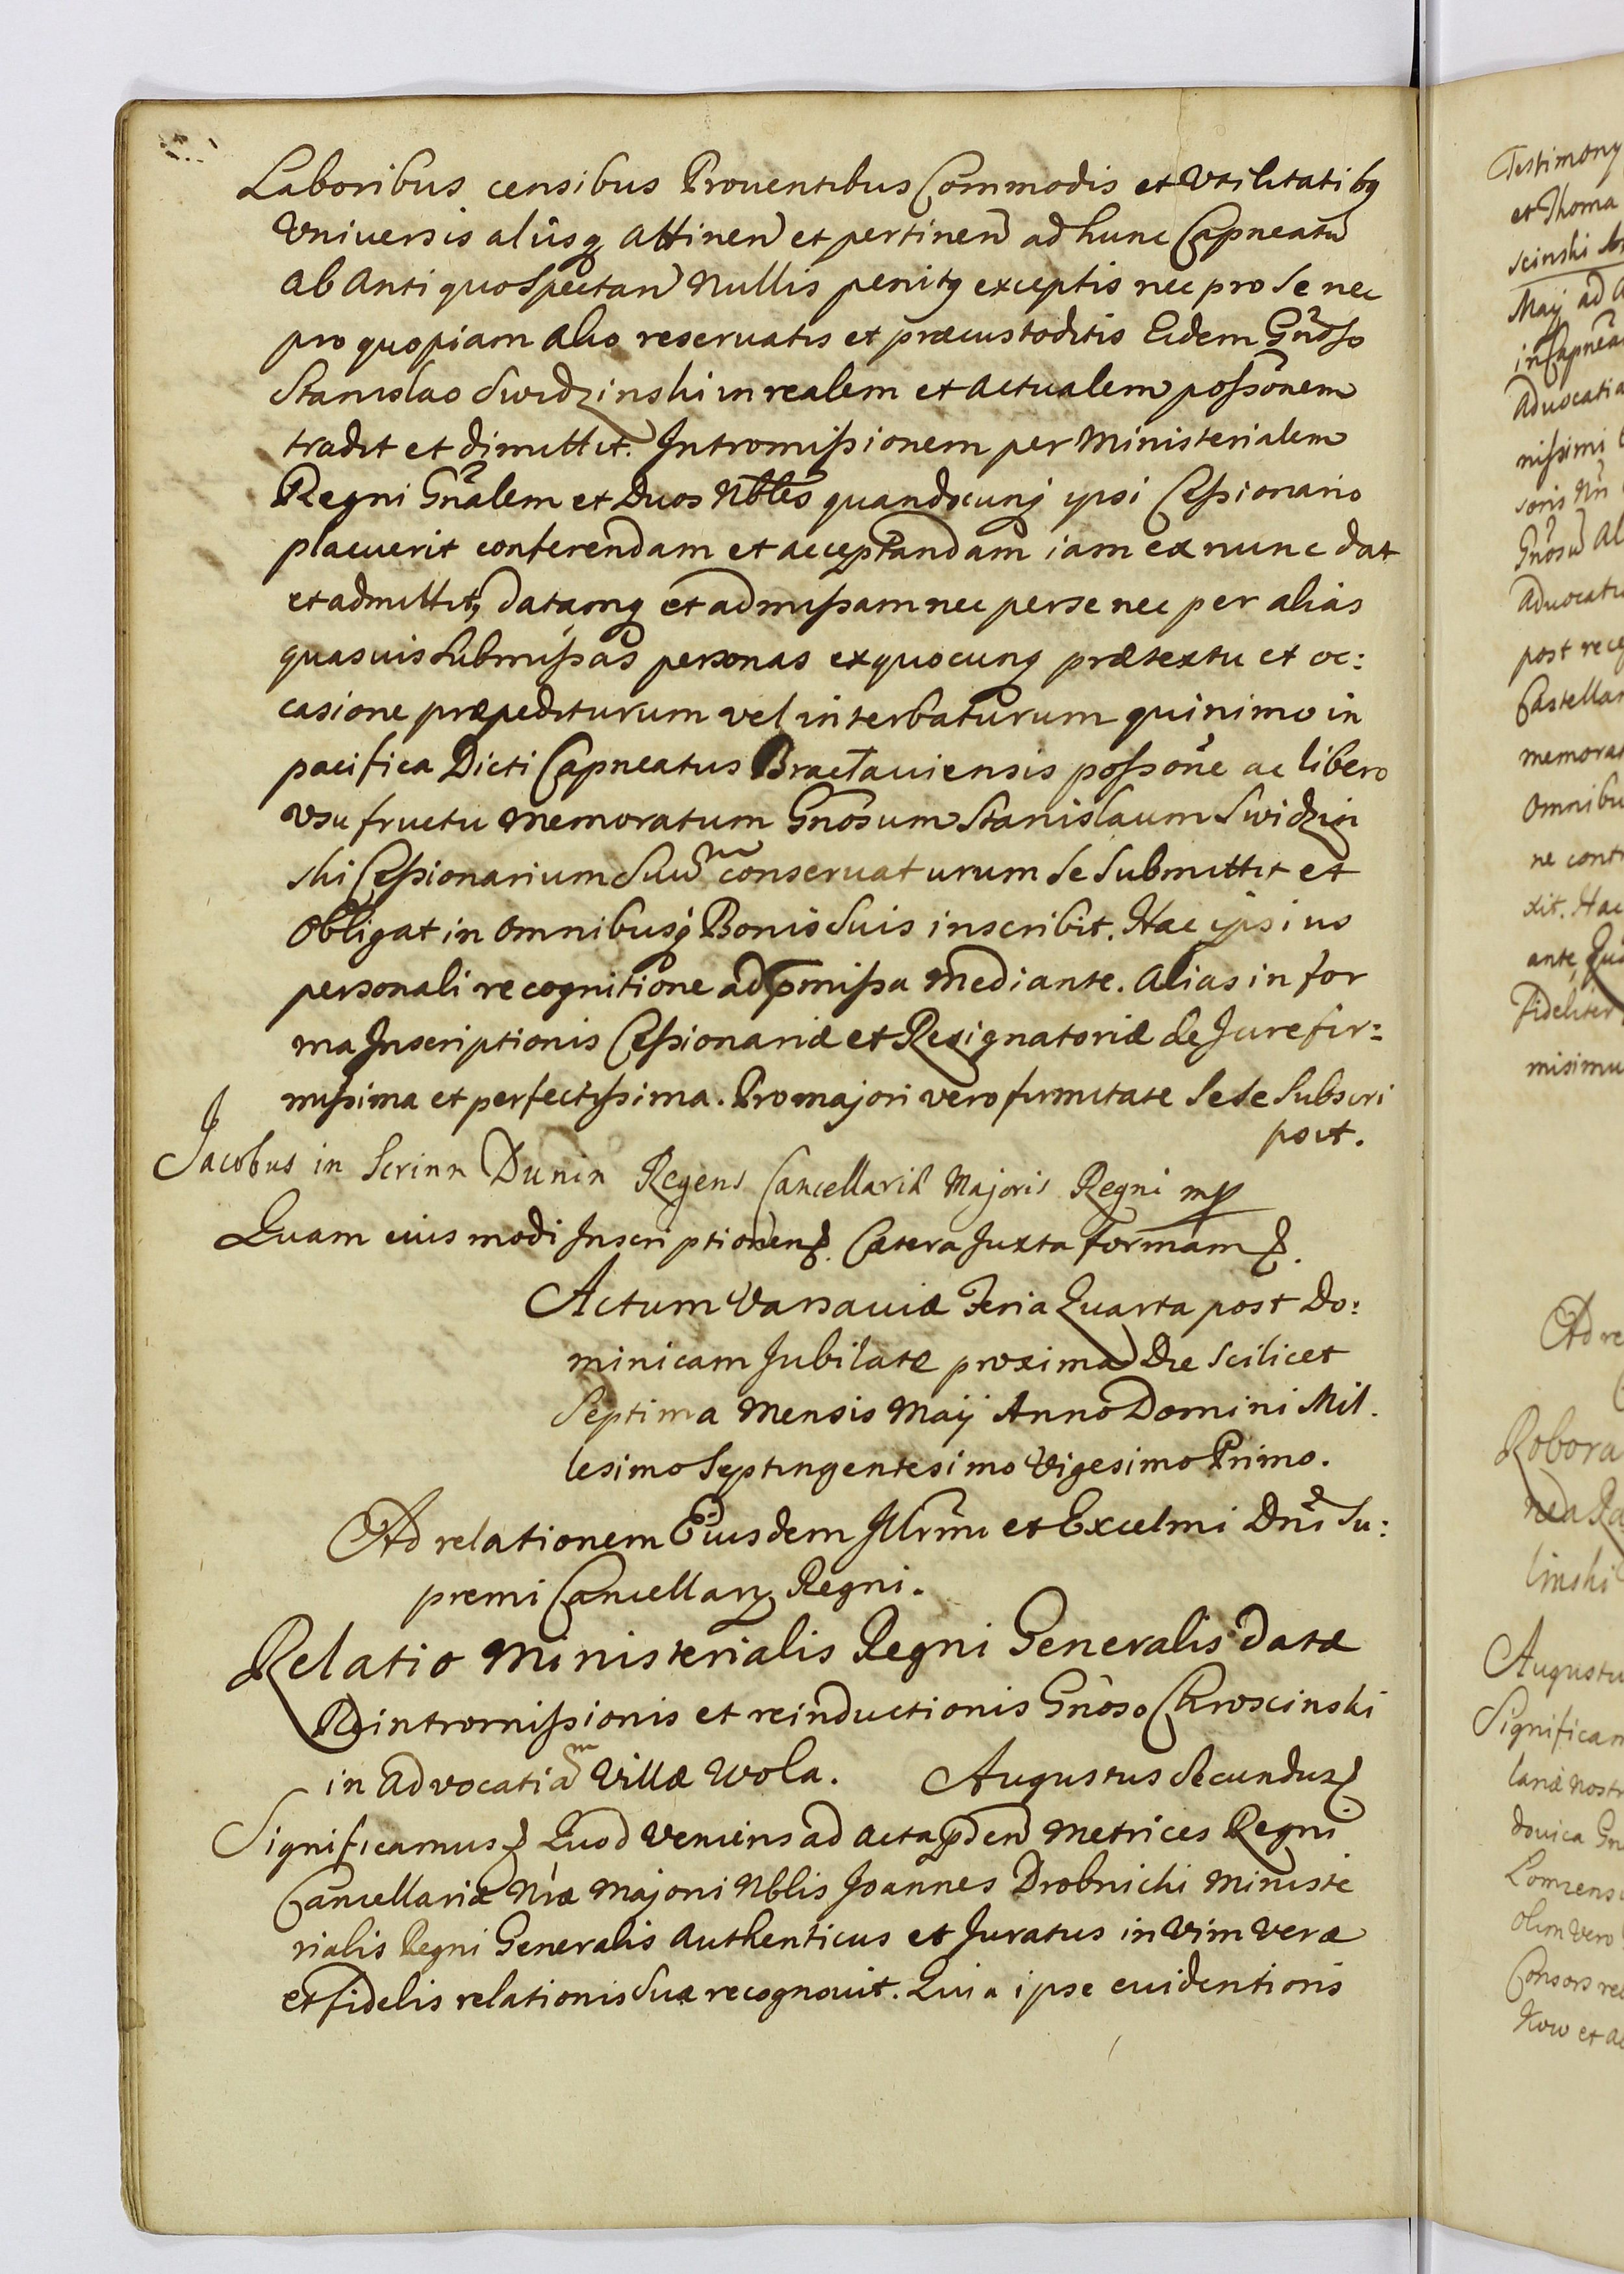 Laboribus censibus Prouentibus Commodis et Vtilitatibq
Vniuersis alijsq Attinen et pertinen ad hunc Capneatu
ab Antiquo Spectan Nullis penitq exceptis nec pro Se nec
pro quopiam Alio reseruatis et præcustoditis Eidem Gnoso
Stanislao Swidzinski in realem et Actualem poßonem
tradit et dimittit. Intromißionem per Ministerialem
Regni Gnalem et Duos Nbles quandocunq ipsi Ceßionario
placuerit conferendam et acceptandam iam ex nunc dat
et admittit, datamq et admißam nec per se nec per alias
quasuis Submißas personas ex quocunq prætextu et oc:
casione præpediturum vel interbaturum quinimo in
pacifica Dicti Capneatus Bractauiensis poßone ac libero
Vsufructu Memoratum Gnosum Stanislaum Swidzin
ski Ceßionarium Suum conseruaturum Se Submittit et
Obligat in Omnibusq Bonis Suis inscribit. Hac ipsius
personali recognitione ad pmißa Mediante. Alias in for
ma Inscriptionis Ceßionariæ et Resignatoriæ de Jure fir:
mißima et perfectißima. Pro majori vero firmitate Sese Subscri
psit.
Jacobus in Scrinn Dunin Regens Cancellariæ Majoris Regni mp
Quam eiusmodi Inscriptionem &. Cætera Juxta formam &.
Actum Varsauiæ Feria Quarta post Do:
minicam Jubilate proxima Die Scilicet
Septima Mensis Maij Anno Domini Mil.
lesimo Septingentesimo Vigesimo Primo.
Ad relationem Eiusdem Illrmi et Excelmi Dni Su:
premi Cancellarij Regni.
Relatio Ministerialis Regni Generalis Datæ
Reintromißionis et reinductionis Gnoso Chroscinski
in Advocatiam Villæ Wola. Augustus Secundus &
Significamus & Quod Veniens ad Acta pden Metrices Regni
Cancellariæ Nræ Majoni Nblis Joannes Drobnicki Ministe
rialis Regni Generalis Authenticus et Juratus in Vim Veræ
et fidelis relationis Suæ recognouit. Quia ipse euidentioris
Testimony
et Thoma
scinski
Maij ad
in Capnea
Aduocatia
nißimi
soris Nri
Gnosu Al
Aduocatu
post rece
Castellan
memorat
Omnibu
ne contr
xit. Hac
ante, Qua
Fideliter
misimu
Ad re
Robora
nea Ra
linski
Augustu
Significam
lariæ Nostr
douica Gn
Lomzensi
Olim Vero
Consors rel
kow et ac